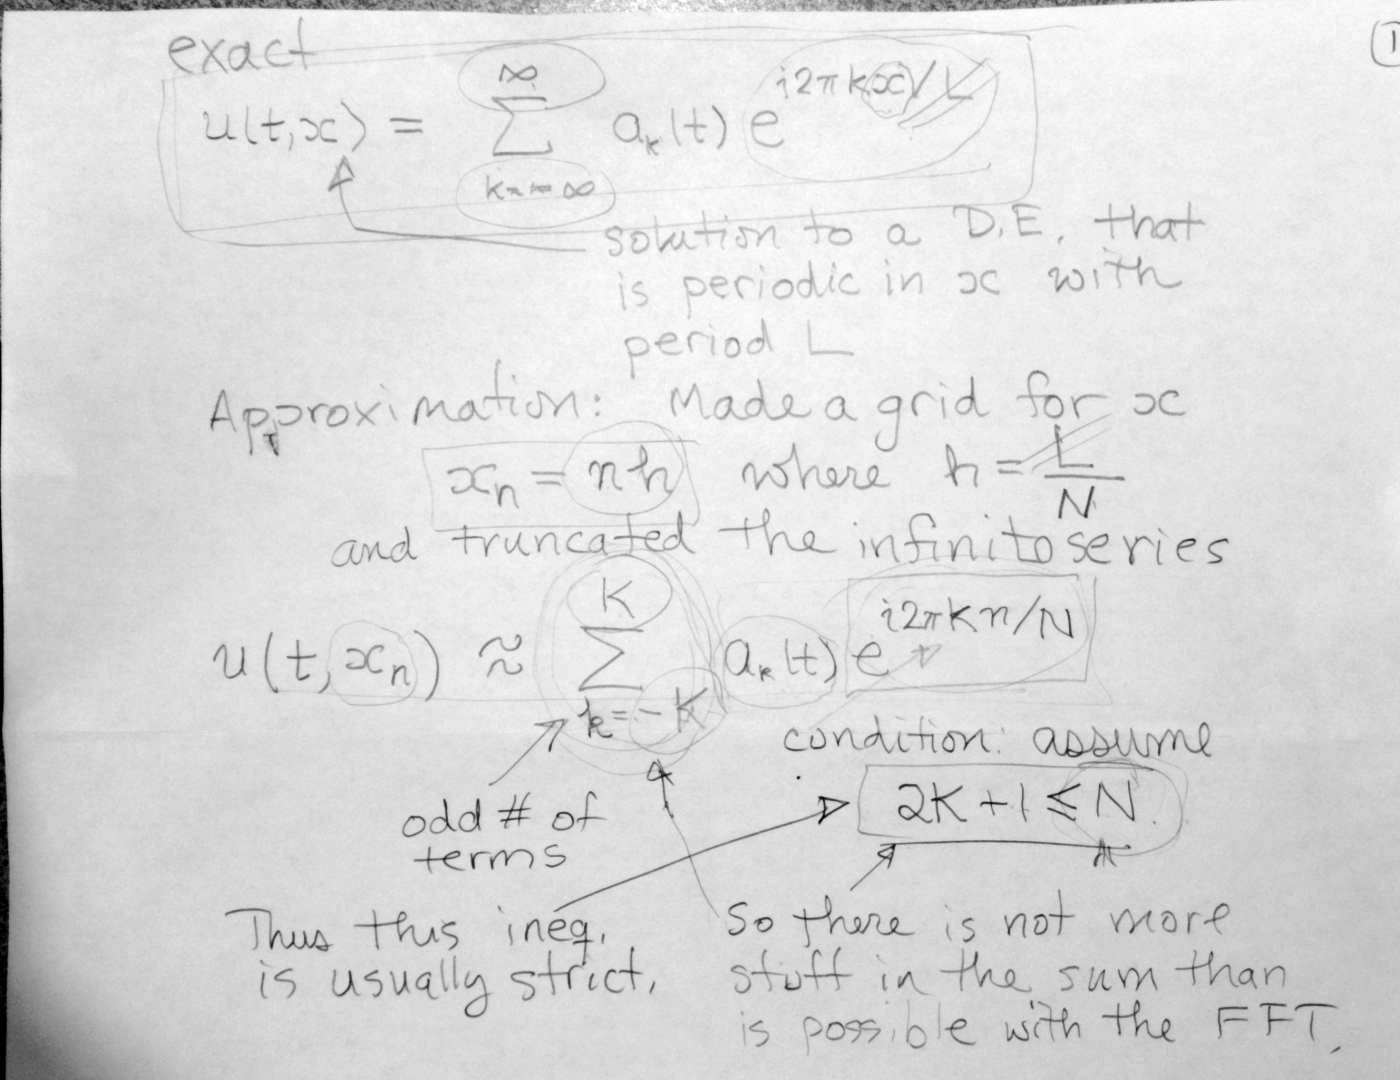 1
exact
u(t,x) = ∞ ∑ k=-∞ a_k(t) e^{i2πkx/L}
solution to a D.E. that
is periodic in x with
period L
Approximation: Made a grid for x
x_n = nh where h = L/N
and truncated the infinite series
u(t,x_n) ≈ K ∑ k=-K a_k(t) e^{i2πkn/N}
condition: assume
2K+1 ≤ N.
odd # of
terms
Thus this ineq.
is usually strict.
So there is not more
stuff in the sum than
is possible with the FFT.